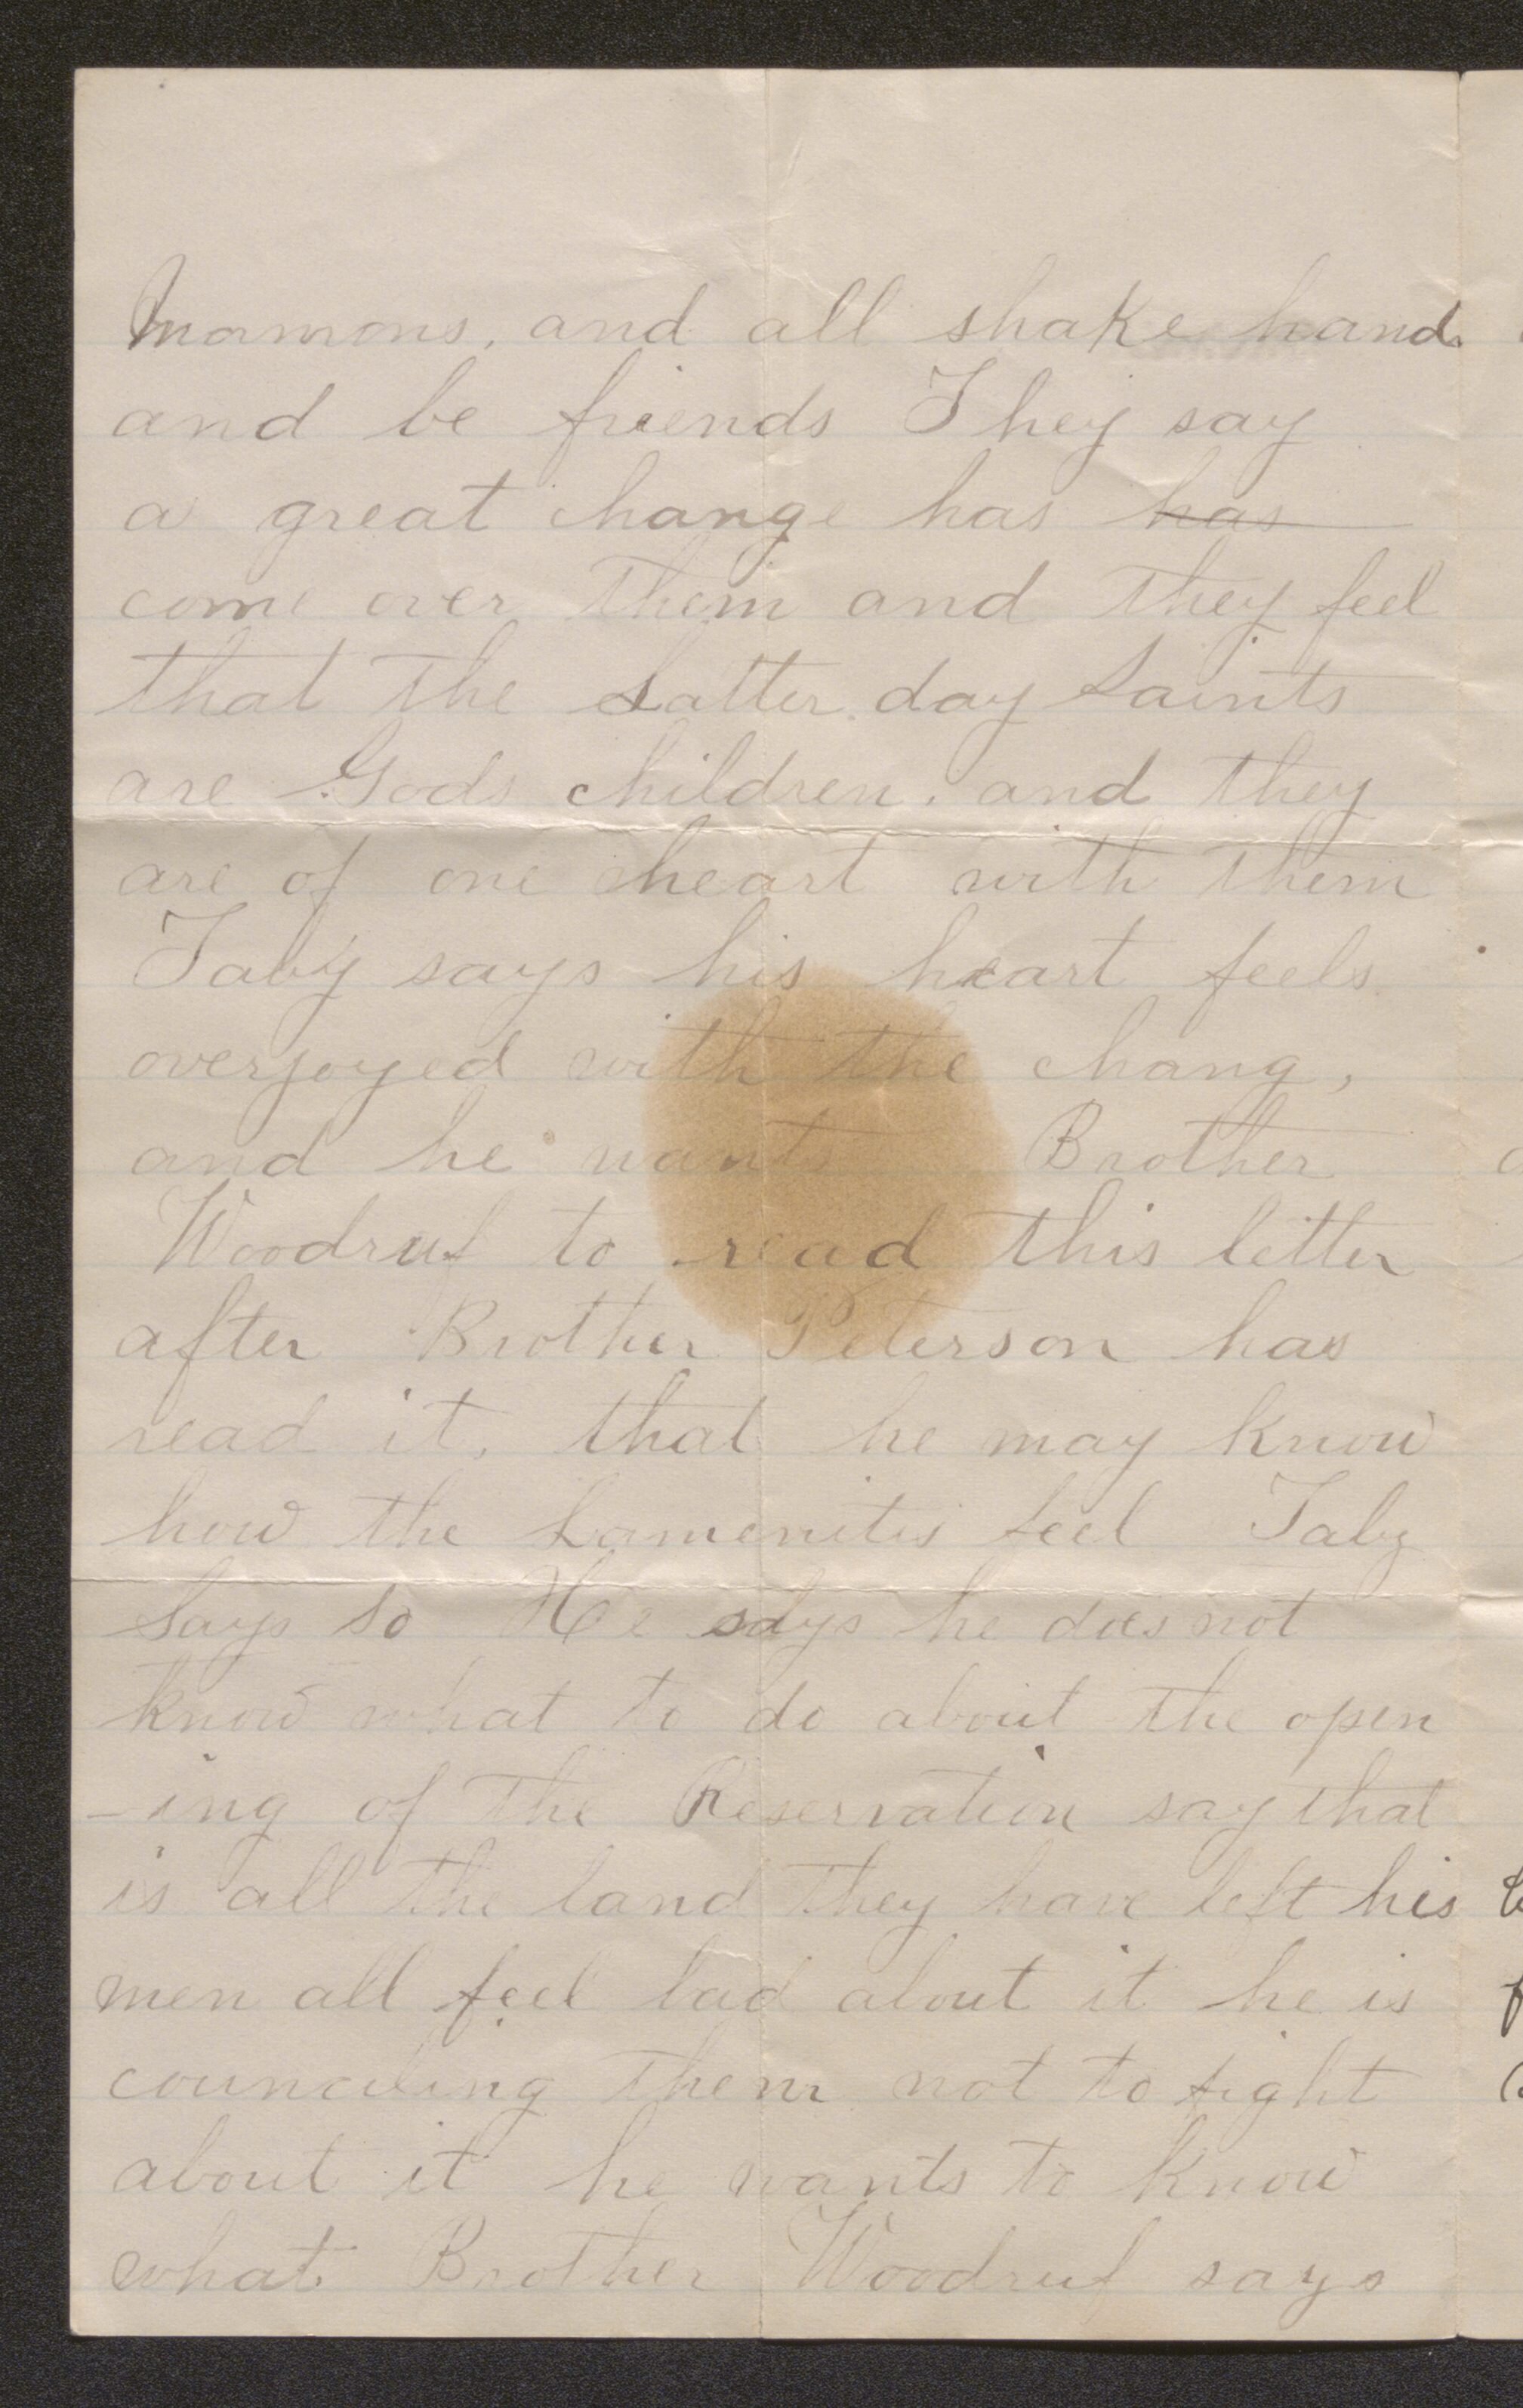 Mormons, and all shake hand
and be friends They say
a great change has has
come over them and they feel
that the Latter day Saints
are Gods children. and they
are of one heart with them
Taby says his heart feels
overjoyed with the chang,
and he wants Brother
Woodruf to read this letter
after Brother Peterson has
read it, that he may know
how the Lamenites feel Taby
Says So He says he does not
know what to do about the open
-ing of the Reservation say that
is all the land they have left his
men all feel bad about it he is
counciling them not to fight
about it he wants to know
what Brother Woodruf says